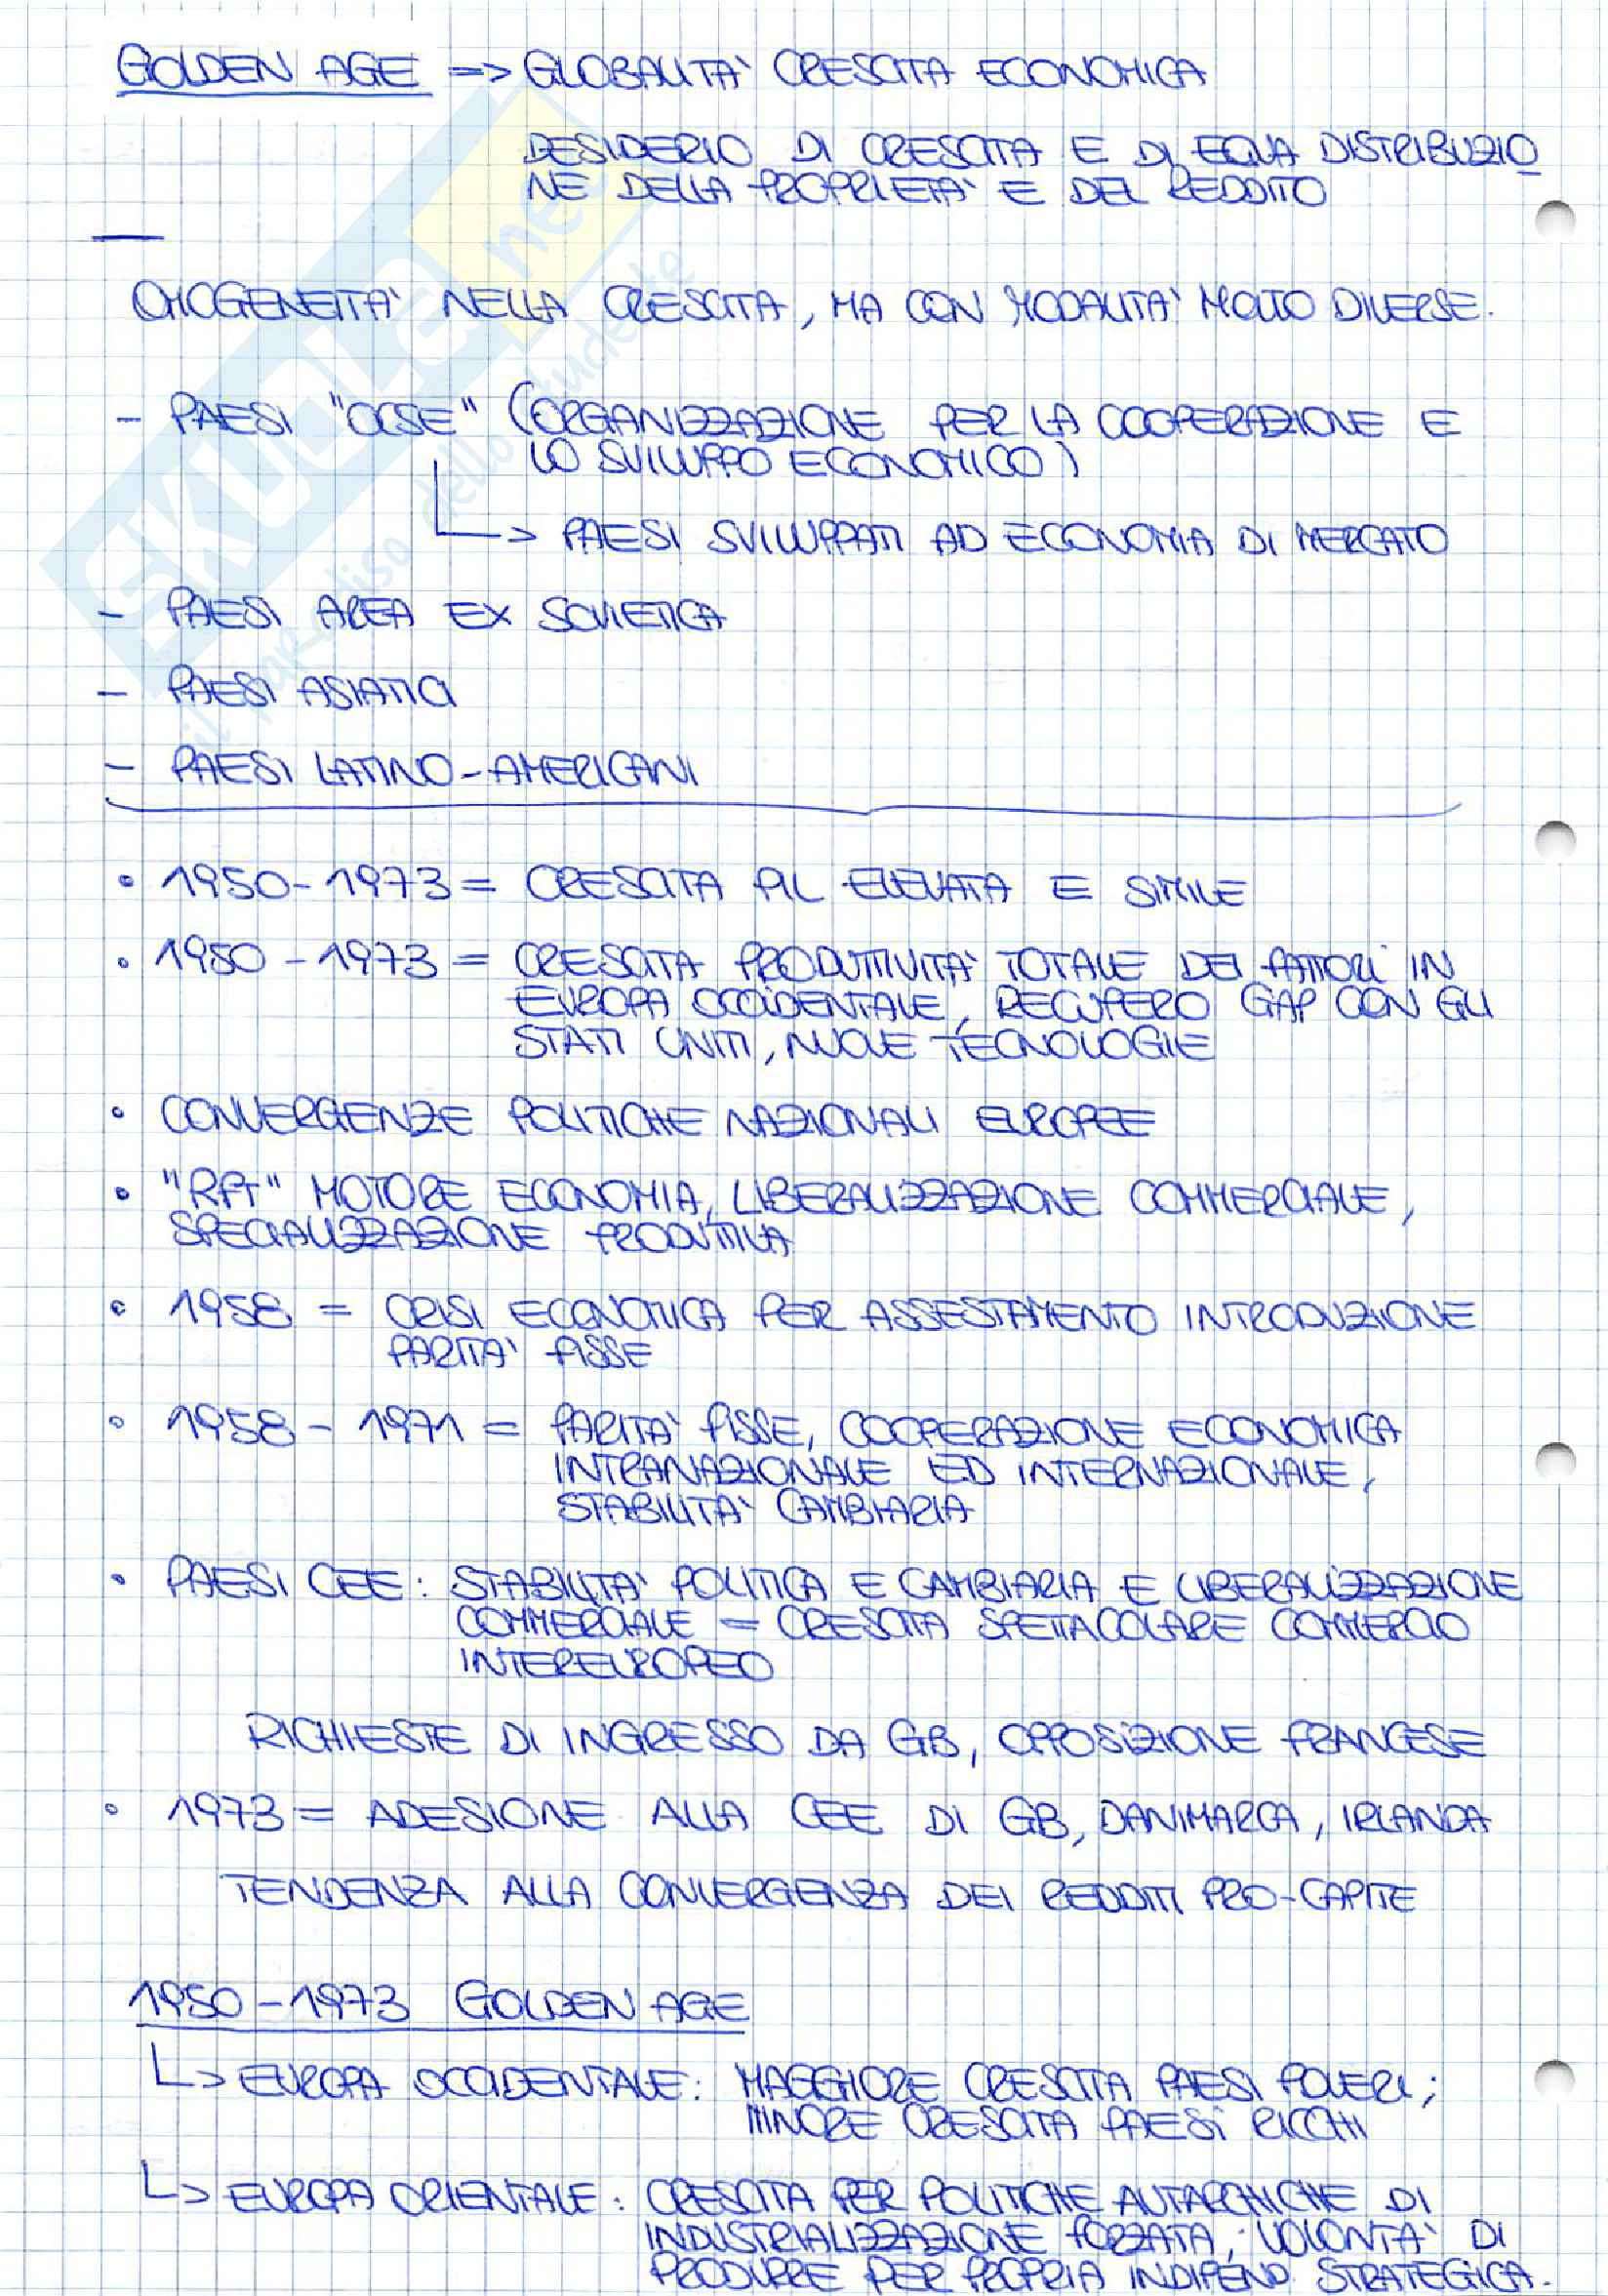 GOLDEN AGE => GLOBALITA' CRESCITA ECONOMICA
DESIDERIO DI CRESCITA E DI EQUA DISTRIBUZIO
NE DELLA PROPRIETA' E DEL REDDITO
OMOGENEITA' NELLA CRESCITA, MA CON MODALITA' MOLTO DIVERSE.
- PAESI "OCSE" (ORGANIZZAZIONE PER LA COOPERAZIONE E
LO SVILUPPO ECONOMICO)
-> PAESI SVILUPPATI AD ECONOMIA DI MERCATO
- PAESI AREA EX SOVIETICA
- PAESI ASIATICI
- PAESI LATINO-AMERICANI
• 1950-1973 = CRESCITA PIL ELEVATA E SIMILE
• 1950-1973 = CRESCITA PRODUTTIVITA' TOTALE DEI FATTORI IN
EUROPA OCCIDENTALE, RECUPERO GAP CON GLI
STATI UNITI, NUOVE TECNOLOGIE
• CONVERGENZE POLITICHE NAZIONALI EUROPEE
• "RFT" MOTORE ECONOMIA, LIBERALIZZAZIONE COMMERCIALE,
SPECIALIZZAZIONE PRODUTTIVA
• 1958 = CRISI ECONOMICA PER ASSESTAMENTO INTRODUZIONE
PARITA' FISSE
• 1958-1971 = PARITA' FISSE, COOPERAZIONE ECONOMICA
INTRANAZIONALE ED INTERNAZIONALE,
STABILITA' CAMBIARIA
• PAESI CEE: STABILITA' POLITICA E CAMBIARIA E LIBERALIZZAZIONE
COMMERCIALE = CRESCITA SPETTACOLARE COMMERCIO
INTEREUROPEO
RICHIESTE DI INGRESSO DA GB, OPPOSIZIONE FRANCESE
• 1973 = ADESIONE ALLA CEE DI GB, DANIMARCA, IRLANDA
TENDENZA ALLA CONVERGENZA DEI REDDITI PRO-CAPITE
1950-1973 GOLDEN AGE
-> EUROPA OCCIDENTALE: MAGGIORE CRESCITA PAESI POVERI;
MINORE CRESCITA PAESI RICCHI
-> EUROPA ORIENTALE: CRESCITA PER POLITICHE AUTARCHICHE DI
INDUSTRIALIZZAZIONE FORZATA; VOLONTA' DI
PRODURRE PER PROPRIA INDIPEND. STRATEGICA.
SKUOLA.net
il paradiso dello studente